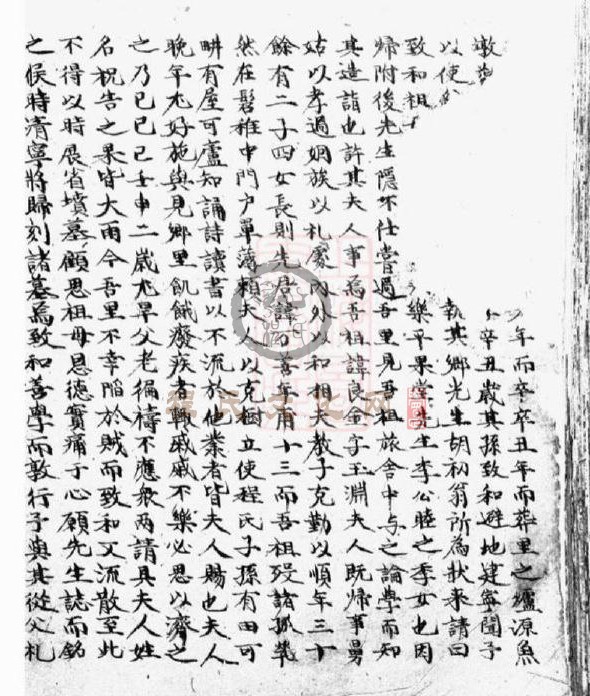 年而卒辛丑年而葬里之壚源魚
辛丑歲其孫致和避地建寧聞予
敦
執其鄉先生胡初翁所為狀來請曰
以使
致和祖 樂平果堂先生李公睦之季女也因
歸附後先生隱不仕嘗過吾里見吾祖旅舍中与之論學而知
其造詣也許其夫人事焉吾祖諱良金字玉淵夫人既歸事舅
姑以孝過姻族以礼處內外以和相夫教子克勤以順年三十
餘有二子四女長則先君諱可善年甫十三而吾祖歿諸孤煢
然在髫稚中門户單薄賴夫人以克樹立使程氏子孫有田可
畊有屋可廬知誦詩讀書以不流於他業者皆夫人賜也夫人
晚年尤好施與見鄉里飢餓廢疾者輒戚戚不樂必思以濟之
之乃已己巳壬申二歲尤旱父老徧禱不應衆两請具夫人姓
名祝告之果皆大雨今吾里不幸陷於賊而致和又流散至此
不得以時展省墳墓顧思祖母恩德實痛于心願先生誌而銘
之俟時清寧將歸刻諸墓焉致和善學而敦行予與其從父礼